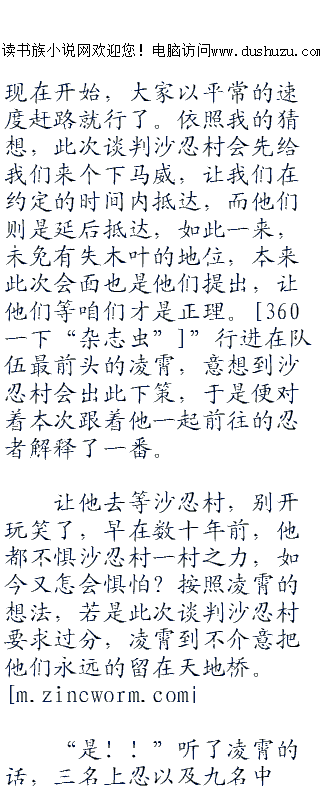 读书族小说网欢迎您！电脑访问www.dushuzu.com
现在开始，大家以平常的速
度赶路就行了。依照我的猜
想，此次谈判沙忍村会先给
我们来个下马威，让我们在
约定的时间内抵达，而他们
则是延后抵达，如此一来，
未免有失木叶的地位，本来
此次会面也是他们提出，让
他们等咱们才是正理。[360
一下“杂志虫”]”行进在队
伍最前头的凌霄，意想到沙
忍村会出此下策，于是便对
着本次跟着他一起前往的忍
者解释了一番。
让他去等沙忍村，别开
玩笑了，早在数十年前，他
都不惧沙忍村一村之力，如
今又怎会惧怕？按照凌霄的
想法，若是此次谈判沙忍村
要求过分，凌霄到不介意把
他们永远的留在天地桥。
[m.zincworm.com]
“是！！”听了凌霄的
话，三名上忍以及九名中